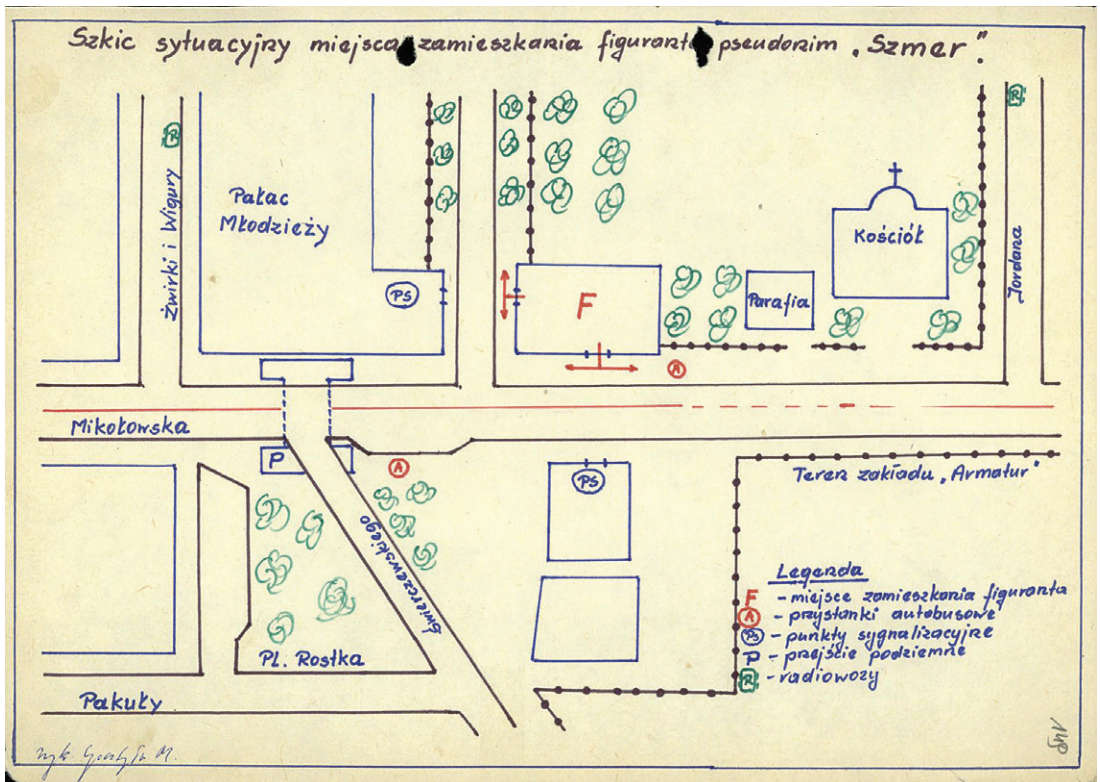 Szkic sytuacyjny miejsca zamieszkania figuranta pseudonim „Szmer".
R
R
Żwirki i Wigury
Pałac
Młodzieży
PS
F
Parafia
Kościół
Jordana
A
Mikołowska
P
A
Świerczewskiego
PS
Teren zakładu „Armatur"
Pl. Rostka
Pakuły
Legenda
F - miejsce zamieszkania figuranta
A - przystanki autobusowe
PS - punkty sygnalizacyjne
P - przejście podziemne
R - radiowozy
wyk.